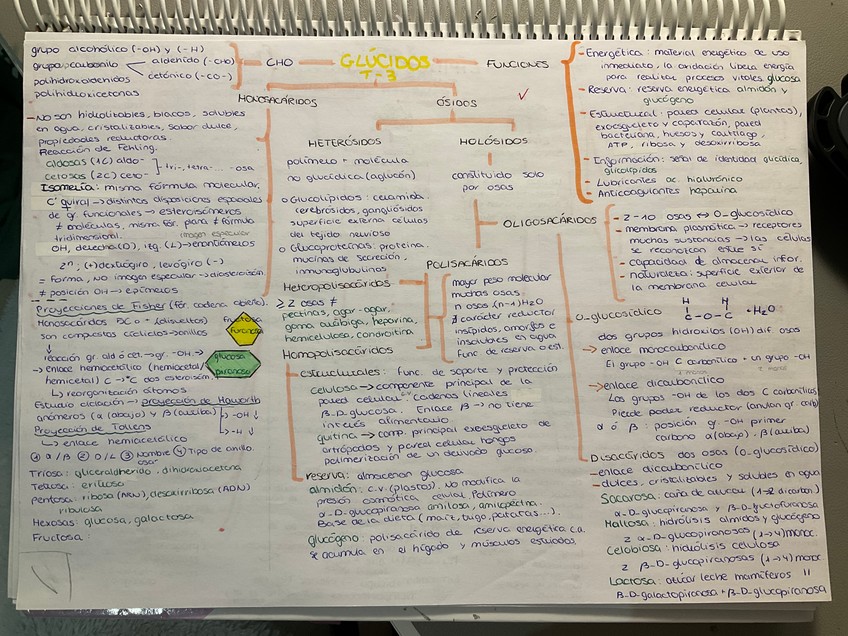 GLÚCIDOS
T-3
CHO
grupo alcohólico (-OH) y (-H)
grupo carbonilo
aldehído (-CHO)
cetónico (-CO-)
polihidroxialdehidos
polihidroxicetonas
FUNCIONES
- Energética: material energético de uso
inmediato, la oxidación libera energía
para realizar procesos vitales glucosa
- Reserva: reserva energética almidón y
glucógeno
- Estructural: pared celular (plantas),
exoesqueleto y caparazón, pared
bacteriana, huesos y cartílago,
ATP, ribosa y desoxirribosa
- Información: señal de identidad glucídica,
glicolípidos
- Lubricantes ac. hialurónico
- Anticoagulantes heparina
MONOSACÁRIDOS
- No son hidrolizables, blancos, solubles
en agua, cristalizables, sabor dulce,
propiedades reductoras.
Reacción de Fehling.
aldosas (1C) aldo-
cetosas (2C) ceto-
tri-, tetra-... -osa
Isomería: misma fórmula molecular,
C quiral → distintas disposiciones espaciales
de gr. funcionales → estereoisómeros
≠ moléculas, misma fór. plana ≠ fórmula
tridimensional.
imagen especular
OH, derecha (D), izq. (L) → enantiómeros
2ⁿ, (+) dextrógiro, levógiro (-)
= forma, no imagen especular → diastereoisóm.
≠ posición OH → epímeros
Proyecciones de Fisher (fór. cadena abierta).
Monosacáridos 5C o + (disueltos)
son compuestos cíclicos → anillos
fructosa
furanosa
↓
reacción gr. ald ó cet. → gr. -OH →
→ enlace hemiacetálico (hemiacetal/
hemicetal) C → *C dos estereoisóm.
↳ reorganización átomos
glucosa
piranosa
Estudio ciclación → proyección de Haworth
anómeros (α (abajo) y β (arriba)
-OH ↓
-H ↓
Proyección de Tollens
↳ enlace hemiacetálico
① α/β ② D/L ③ Nombre ④ Tipo de anillo.
osa
Triosa: gliceraldehído, dihidroxiacetona
Tetrosa: eritrosa
Pentosa: ribosa (ARN), desoxirribosa (ADN)
ribulosa
Hexosas: glucosa, galactosa
Fructosa:
ÓSIDOS
HETERÓSIDOS
polímero + molécula
no glucídica (aglucón)
o Glucolípidos: ceramida.
cerebrósidos, gangliósidos
superficie externa células
del tejido nervioso
o Glucoproteínas: proteína.
mucinas de secreción,
inmunoglobulinas
HOLÓSIDOS
constituido solo
por osas
POLISACÁRIDOS
mayor peso molecular
muchas osas.
n osas (n-1) H₂O
∄ carácter reductor
insípidos, amorfos e
insolubles en agua
func. de reserva o est.
Heteropolisacáridos
≥ 2 osas ≠
pectinas, agar-agar,
goma arábiga, heparina,
hemicelulosa, condroitina
Homopolisacáridos
- estructurales: func. de soporte y protección
celulosa → componente principal de la
pared celular cadenas lineales
β-D-glucosa. Enlace β → no tiene
interés alimentario
quitina → comp. principal exoesqueleto de
artrópodos y pared celular hongos
polimerización de un derivado glucosa.
reserva: almacenan glucosa
almidón: c.v. (plastos). No modifica la
presión osmótica celular. Polímero
α-D-glucopiranosa amilosa, amilopectina.
Base de la dieta (maíz, trigo, patatas...).
glucógeno: polisacárido de reserva energética c.a.
se acumula en el hígado y músculos estriados.
OLIGOSACÁRIDOS
- 2-10 osas ↔ O-glucosídico
- membrana plasmática → receptores
muchas sustancias → las células
se reconozcan entre sí
- capacidad de almacenar infor.
- naturaleza: superficie exterior de
la membrana celular
O-glucosídico
H H
C-O-C + H₂O
dos grupos hidroxilos (OH) dif. osas
→ enlace monocarbonílico
El grupo -OH C carbonílico + un grupo -OH
→ enlace dicarbonílico
Los grupos -OH de los dos C carbonílicos
Pierde poder reductor (anulan gr. carb)
α ó β: posición gr -OH primer
carbono α (abajo), β (arriba)
Disacáridos dos osas (O-glucosídico)
- enlace dicarbonílico
- dulces, cristalizables y solubles en agua
Sacarosa: caña de azúcar (1→2 dicarbon.)
α-D-glucopiranosa y β-D-fructofuranosa
Maltosa: hidrólisis almidón y glucógeno
2 α-D-glucopiranosas (1→4) monoc.
Celobiosa: hidrólisis celulosa
2 β-D-glucopiranosas (1→4) monoc.
Lactosa: azúcar leche mamíferos "
β-D-galactopiranosa + β-D-glucopiranosa